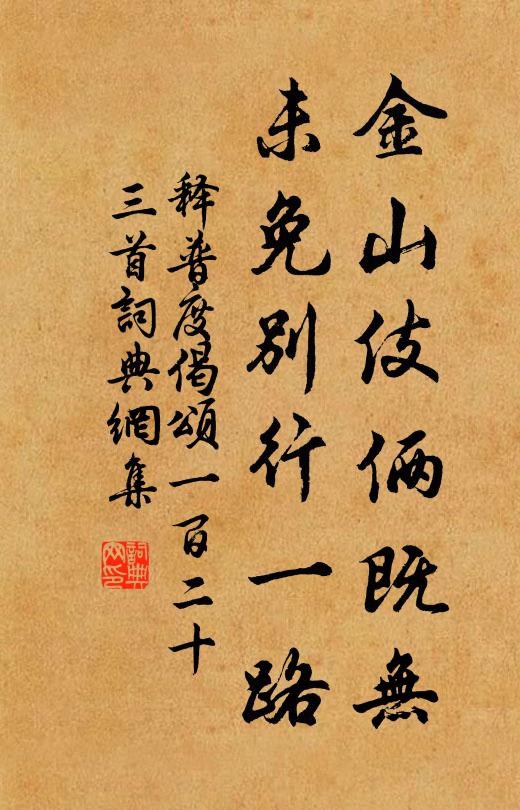 金山伎倆既無
未免別行一路
释普度偈頌一百二十
三首詞典網集
詞典網印